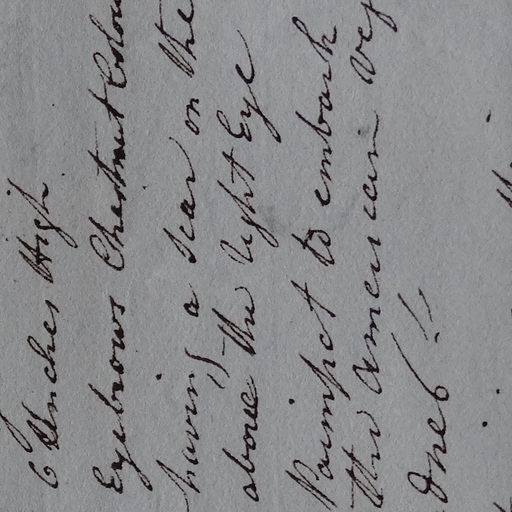 6 Inches High
Eyebrows Chestnut Colou
having a scar on the
above the light Eye
to embark
the American ves